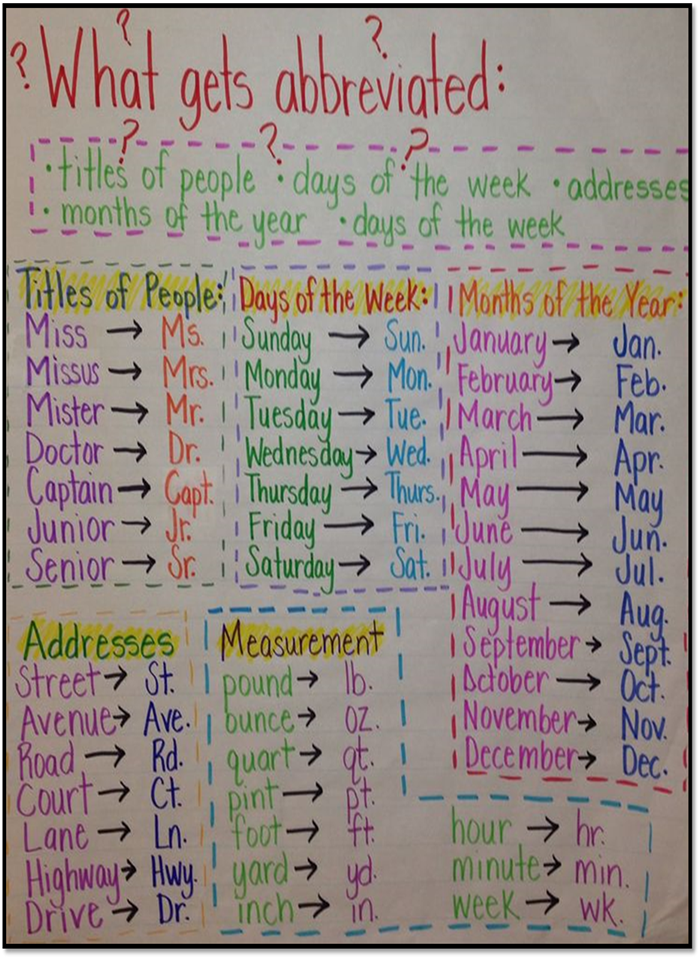 ? ? ?
What gets abbreviated:
? ? ?
· titles of people · days of the week · addresses
· months of the year · days of the week
Titles of People:
Miss → Ms.
Missus → Mrs.
Mister → Mr.
Doctor → Dr.
Captain → Capt.
Junior → Jr.
Senior → Sr.
Days of the Week:
Sunday → Sun.
Monday → Mon.
Tuesday → Tue.
Wednesday → Wed.
Thursday → Thurs.
Friday → Fri.
Saturday → Sat.
Months of the Year:
January → Jan.
February → Feb.
March → Mar.
April → Apr.
May → May
June → Jun.
July → Jul.
August → Aug.
September → Sept.
October → Oct.
November → Nov.
December → Dec.
Addresses
Street → St.
Avenue → Ave.
Road → Rd.
Court → Ct.
Lane → Ln.
Highway → Hwy.
Drive → Dr.
Measurement
pound → lb.
ounce → oz.
quart → qt.
pint → pt.
foot → ft.
yard → yd.
inch → in.
hour → hr.
minute → min.
week → wk.